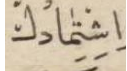 اِشْتِمَادُكَ